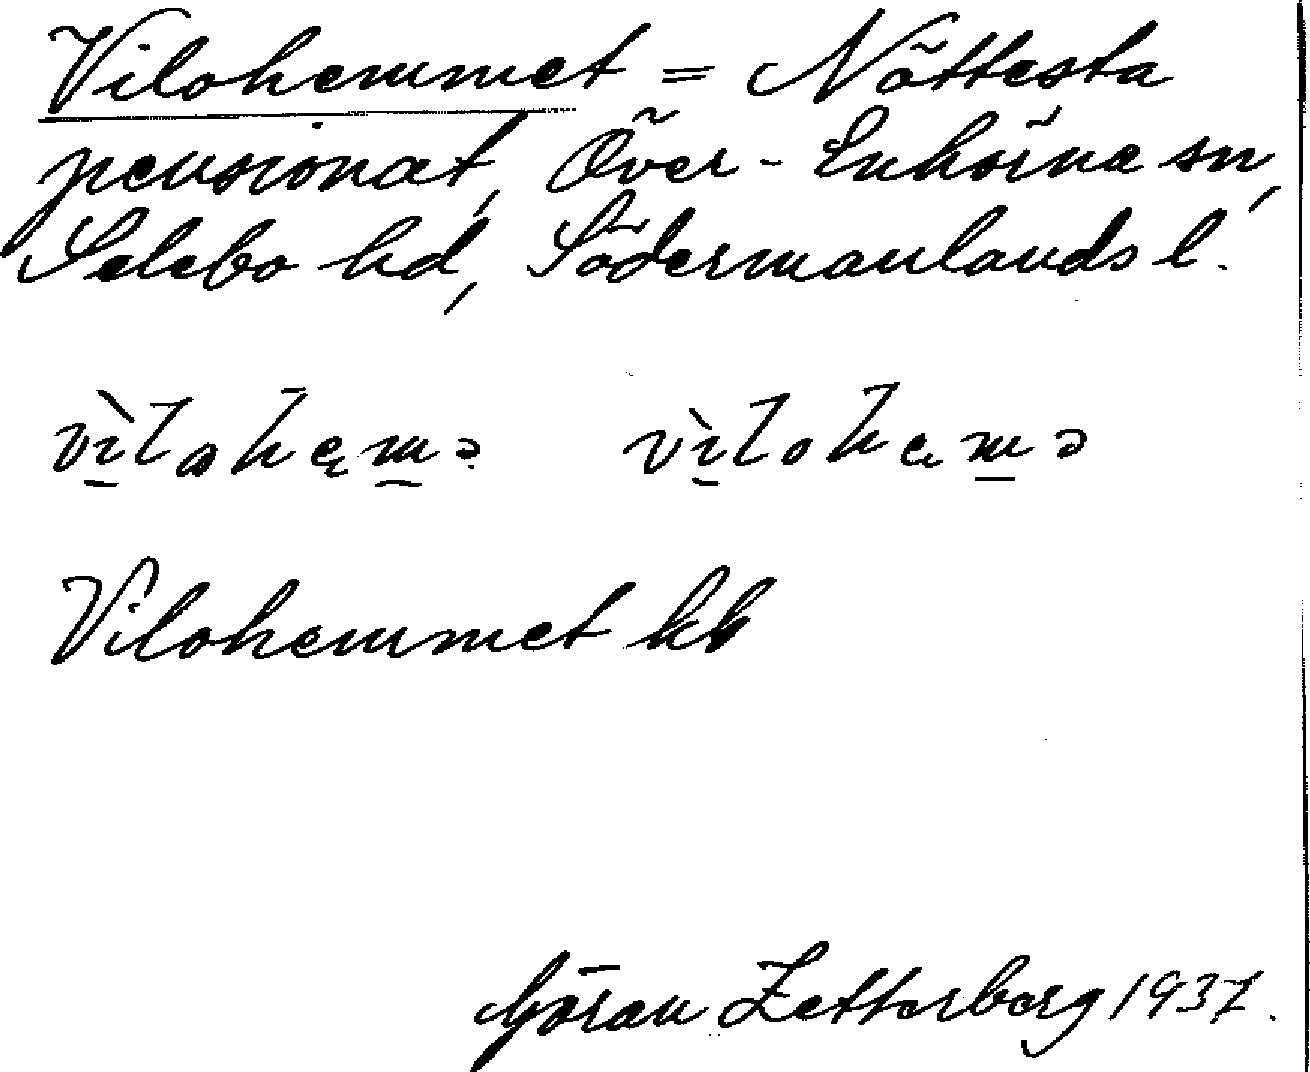 Vilohemmet = Nöttesta
pensionat, Över-Enhörna sn,
Selebo hd, Södermanlands l.
vìlohęmə vìlohęmə
Vilohemmet kb
Göran Zetterberg 1937.